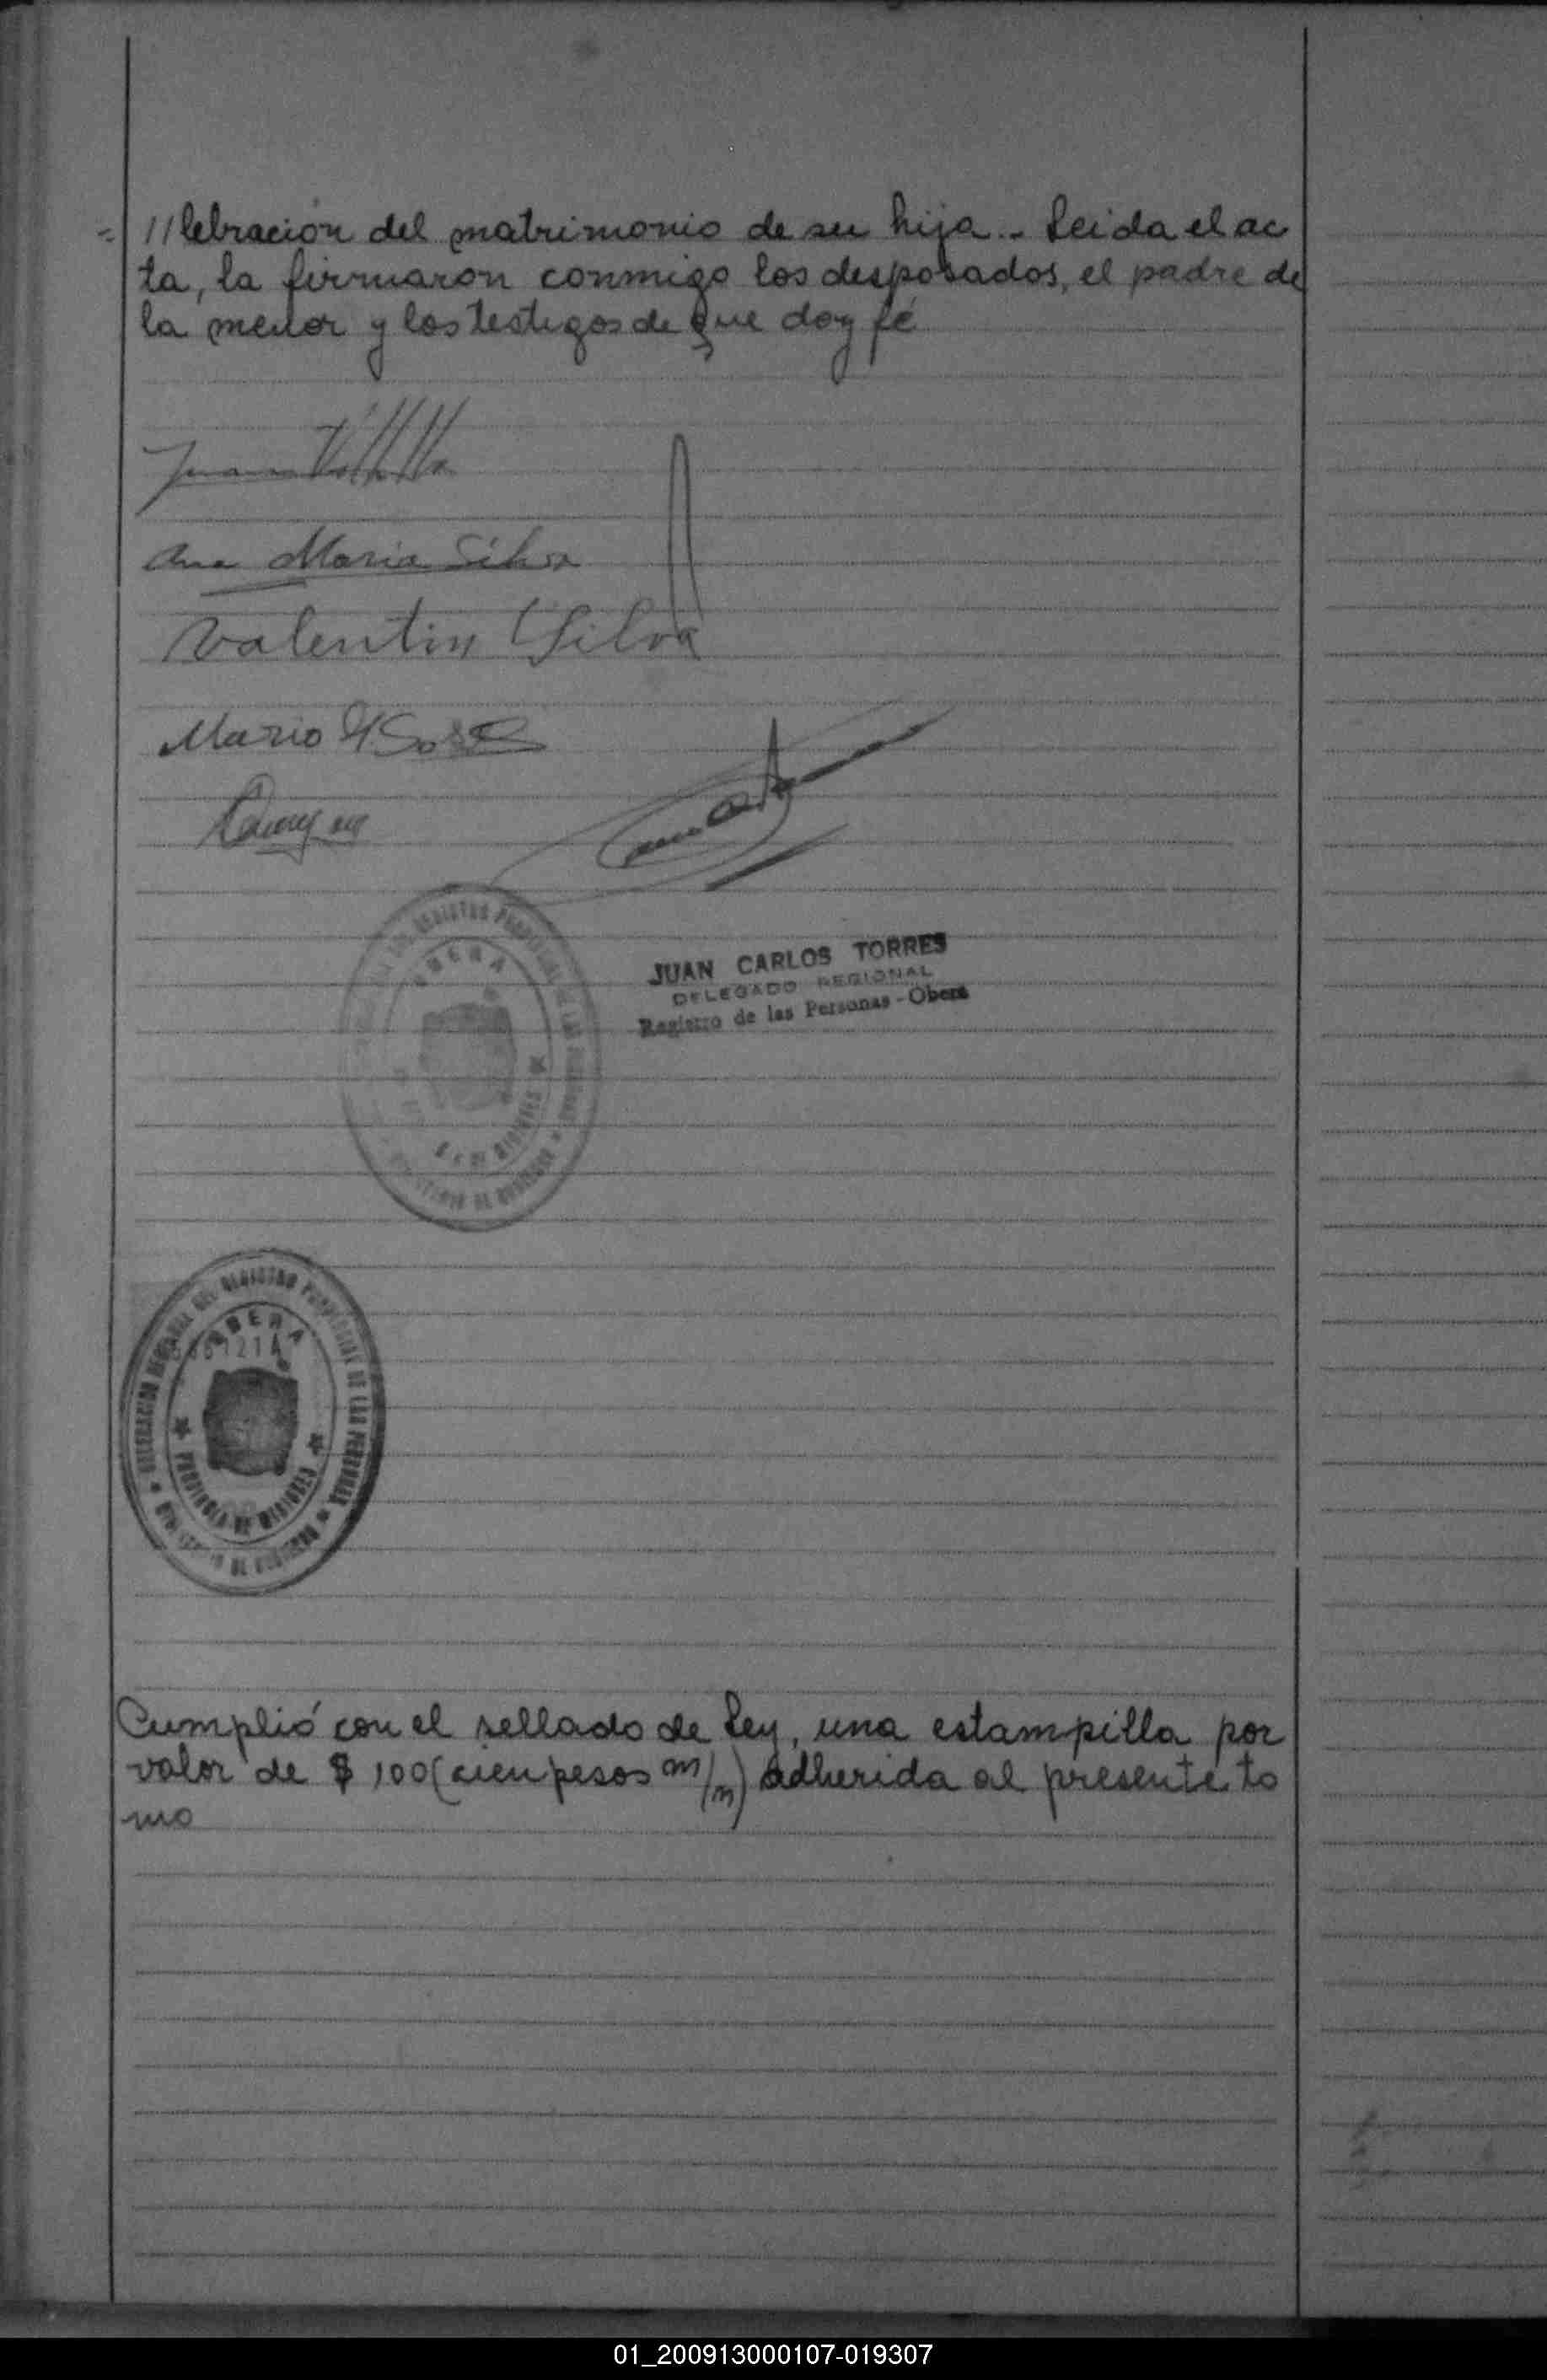 // lebración del matrimonio de su hija.- Leida el ac
ta, la firmaron conmigo los desposados, el padre de
la menor y los testigos de que doy fé
Juan
Ana Maria Silva
Valentin Silva
Mario
JUAN CARLOS TORRES
DELEGADO REGIONAL
Registro de las Personas - Oberá
OBERA
DELEGACION REGIONAL DEL REGISTRO PROVINCIAL DE LAS PERSONAS
OBERA
PROVINCIA DE MISIONES
MINISTERIO DE GOBIERNO
Cumplió con el sellado de Ley, una estampilla por
valor de $ 100 (cien pesos m/n) adherida al presente to
mo
01_200913000107-019307